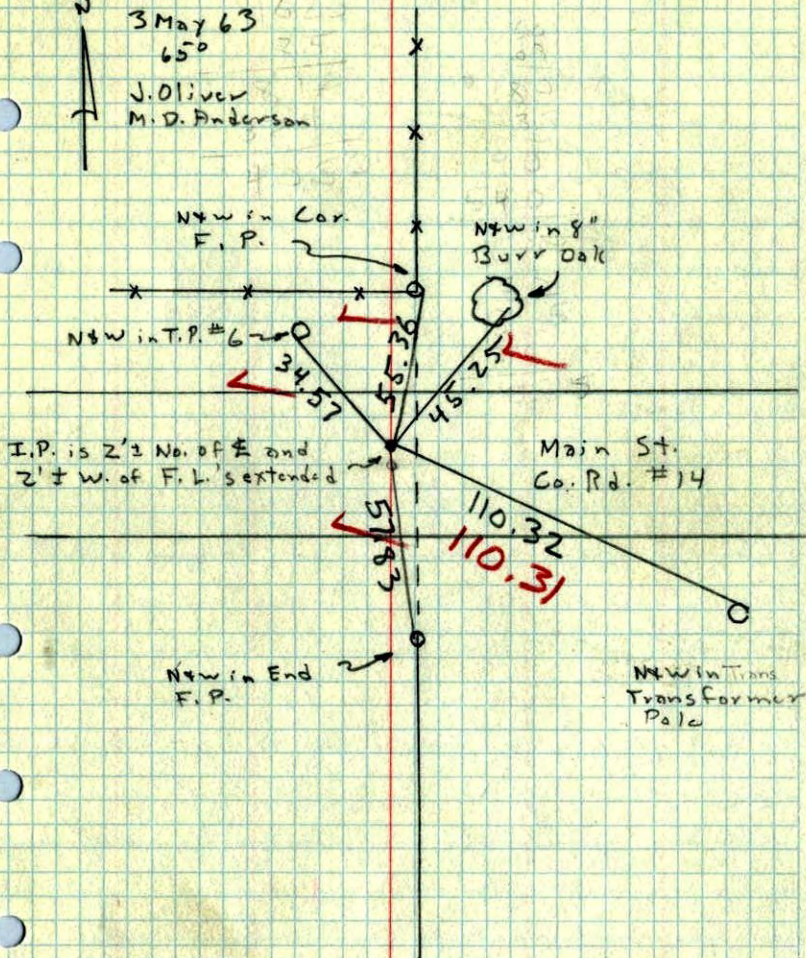 N
3 May 63
65°
J. Oliver
M. D. Anderson
N&W in Cor.
F. P.
N&W in 8"
Burr Oak
N&W in T.P. #6
34.57
55.36
45.25
I.P. is 2'± No. of ℄ and
2'± W. of F.L.'s extended
Main St.
Co. Rd. #14
110.32
110.31
57.83
N&W in End
F. P.
N&W in Trans
Transformer
Pole